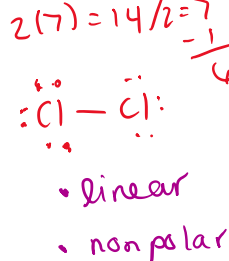 2(7)=14/2=7
-1
:Cl—Cl:
• linear
• nonpolar